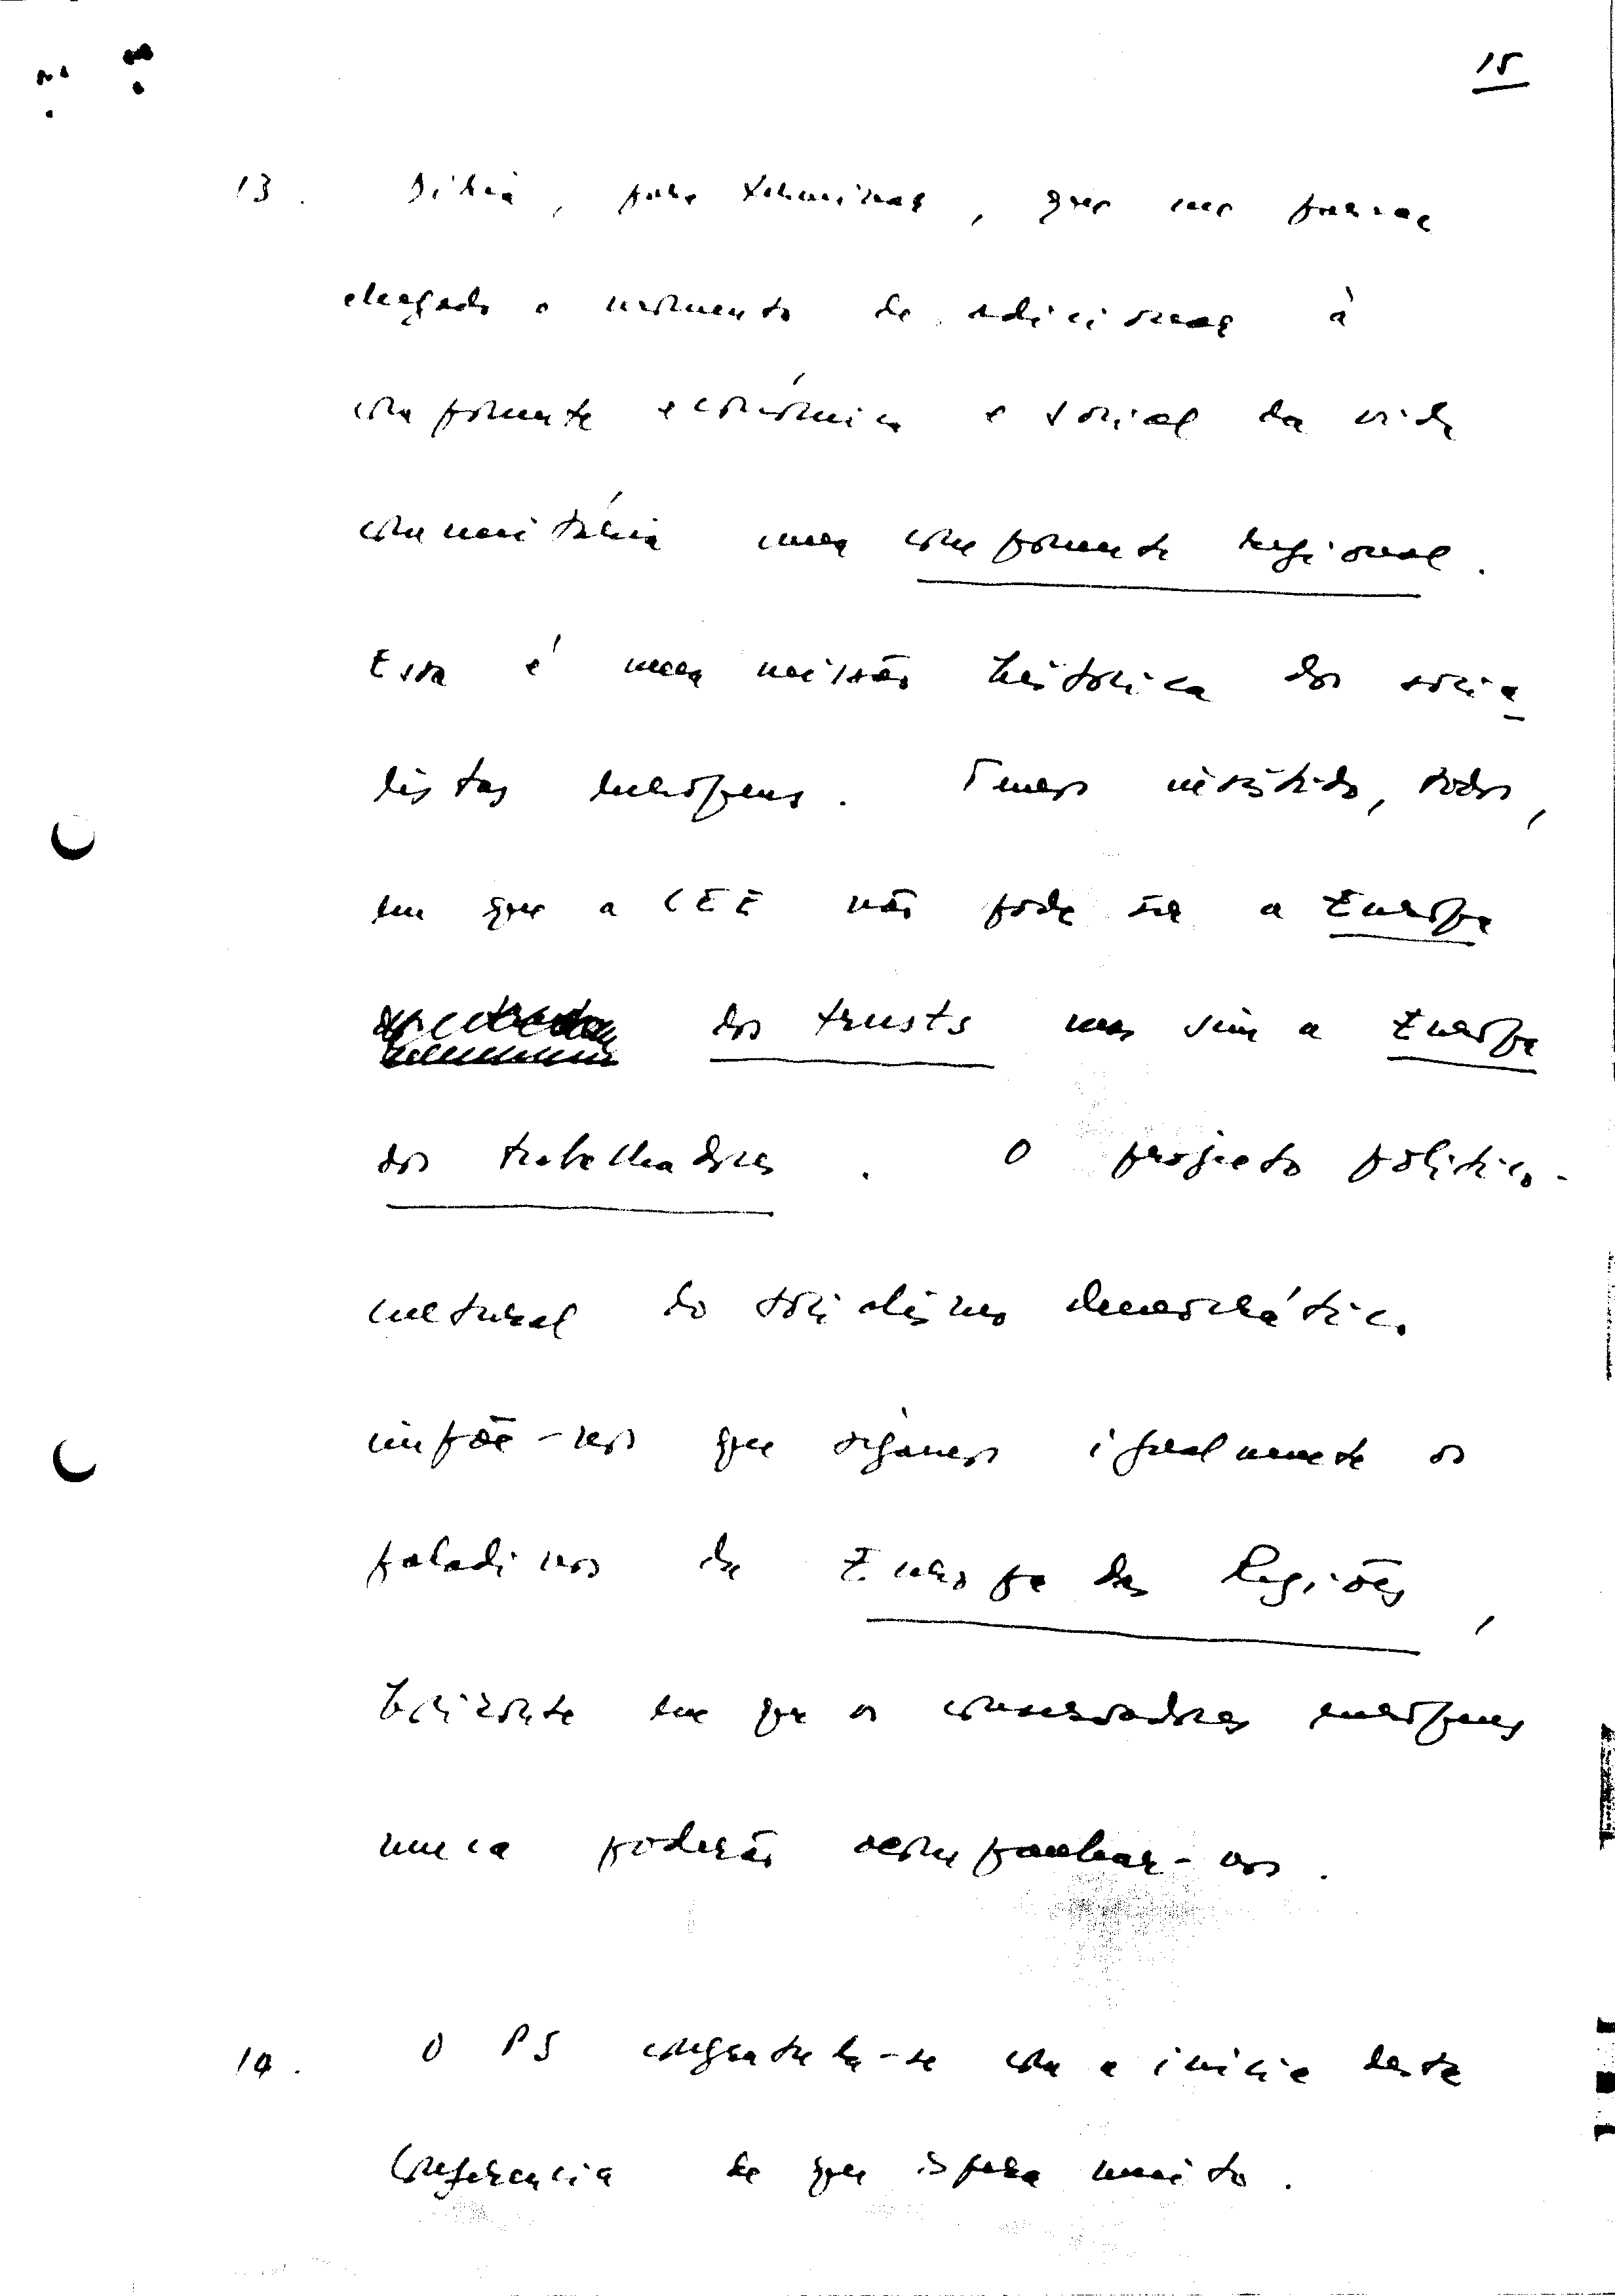 15
13. Diria, para terminar, que me parece
chegado o momento de adicionar à
componente económica e social da vida
comunitária uma componente regional.
Essa é uma missão histórica dos socia
listas europeus. Temos insistido, todos,
em que a CEE não pode ser a Europa
dos trusts mas sim a Europa
dos trabalhadores. O projecto político-
cultural do socialismo democrático
impõe-nos que sejamos igualmente os
paladinos da Europa das Regiões,
horizonte em que os conservadores europeus
nunca poderão acompanhar-nos.
14. O PS congratula-se com a desta
Conferência de que espera muito.